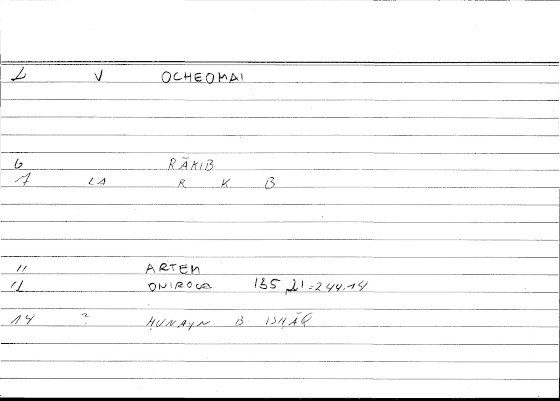 1 V OCHEOMAI
6 RĀKIB
7 LA R K B
11 ARTEM
12 ONIROCR 135,21=244.14
14 ? ḤUNAYN B ISḤĀQ